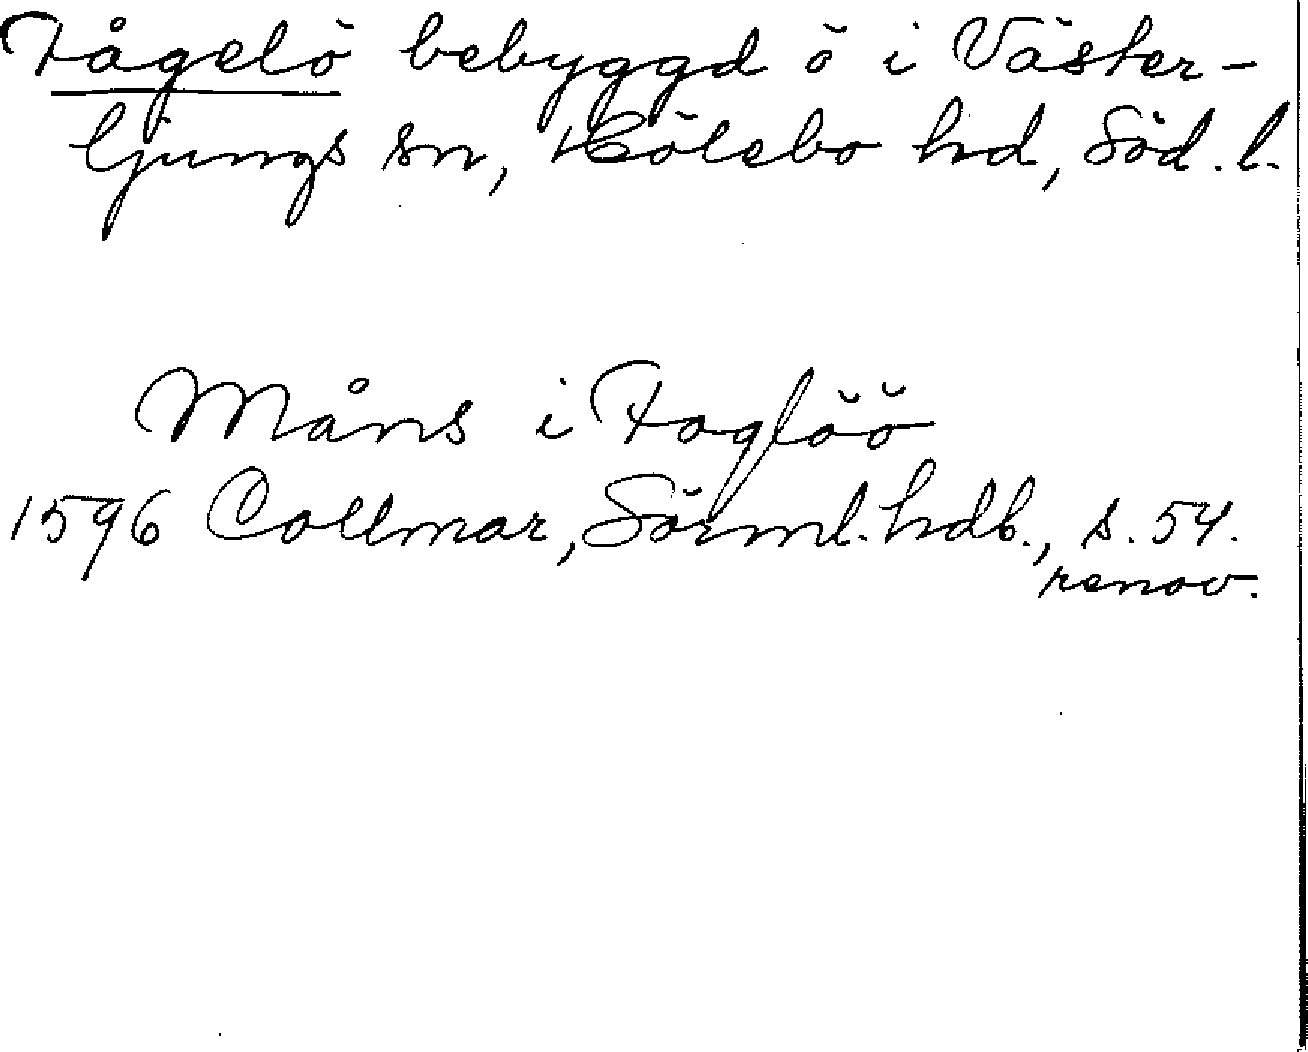 Fågelö bebyggd ö i Väster-
ljungs sn, Hölebo hd, Söd. l.
Måns i Foglöö
1596 Collmar, Sörml. hdb., s. 54.
renov.